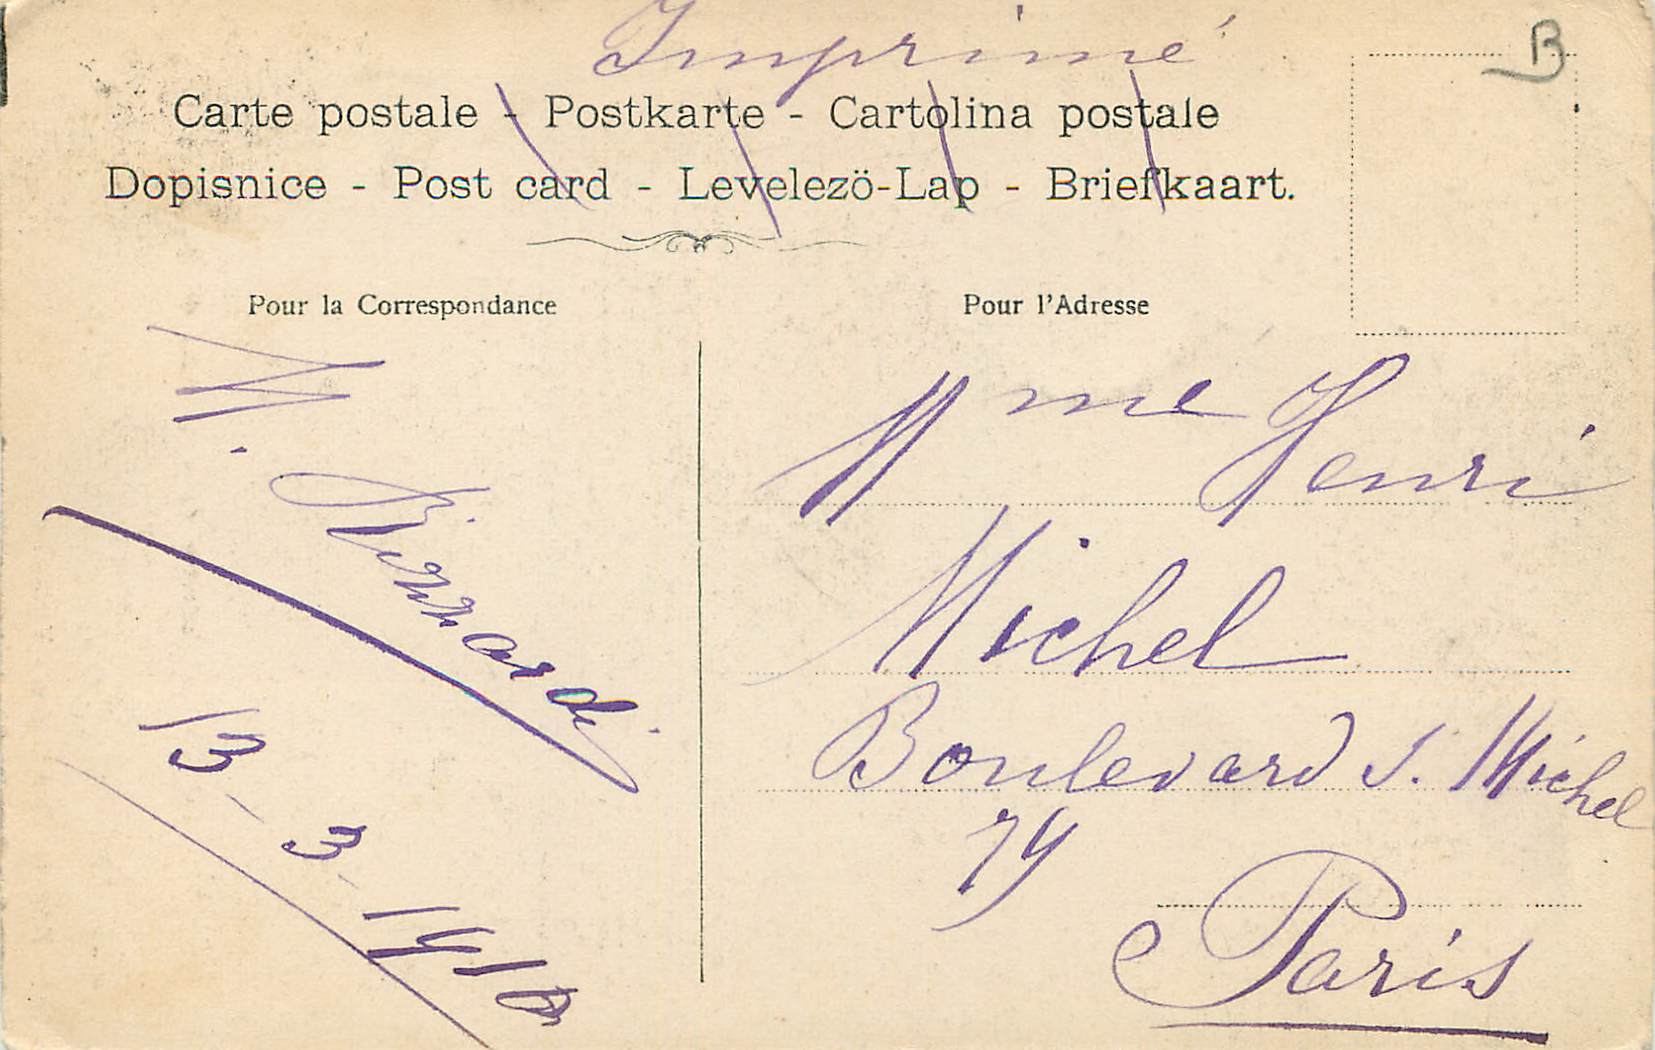 Imprimé
B
Carte postale - Postkarte - Cartolina postale
Dopisnice - Post card - Levelezö-Lap - Briefkaart.
Pour la Correspondance
Pour l'Adresse
M.
13-3-1910
Mme Henri
Michel
Boulevard S. Michel
79
Paris